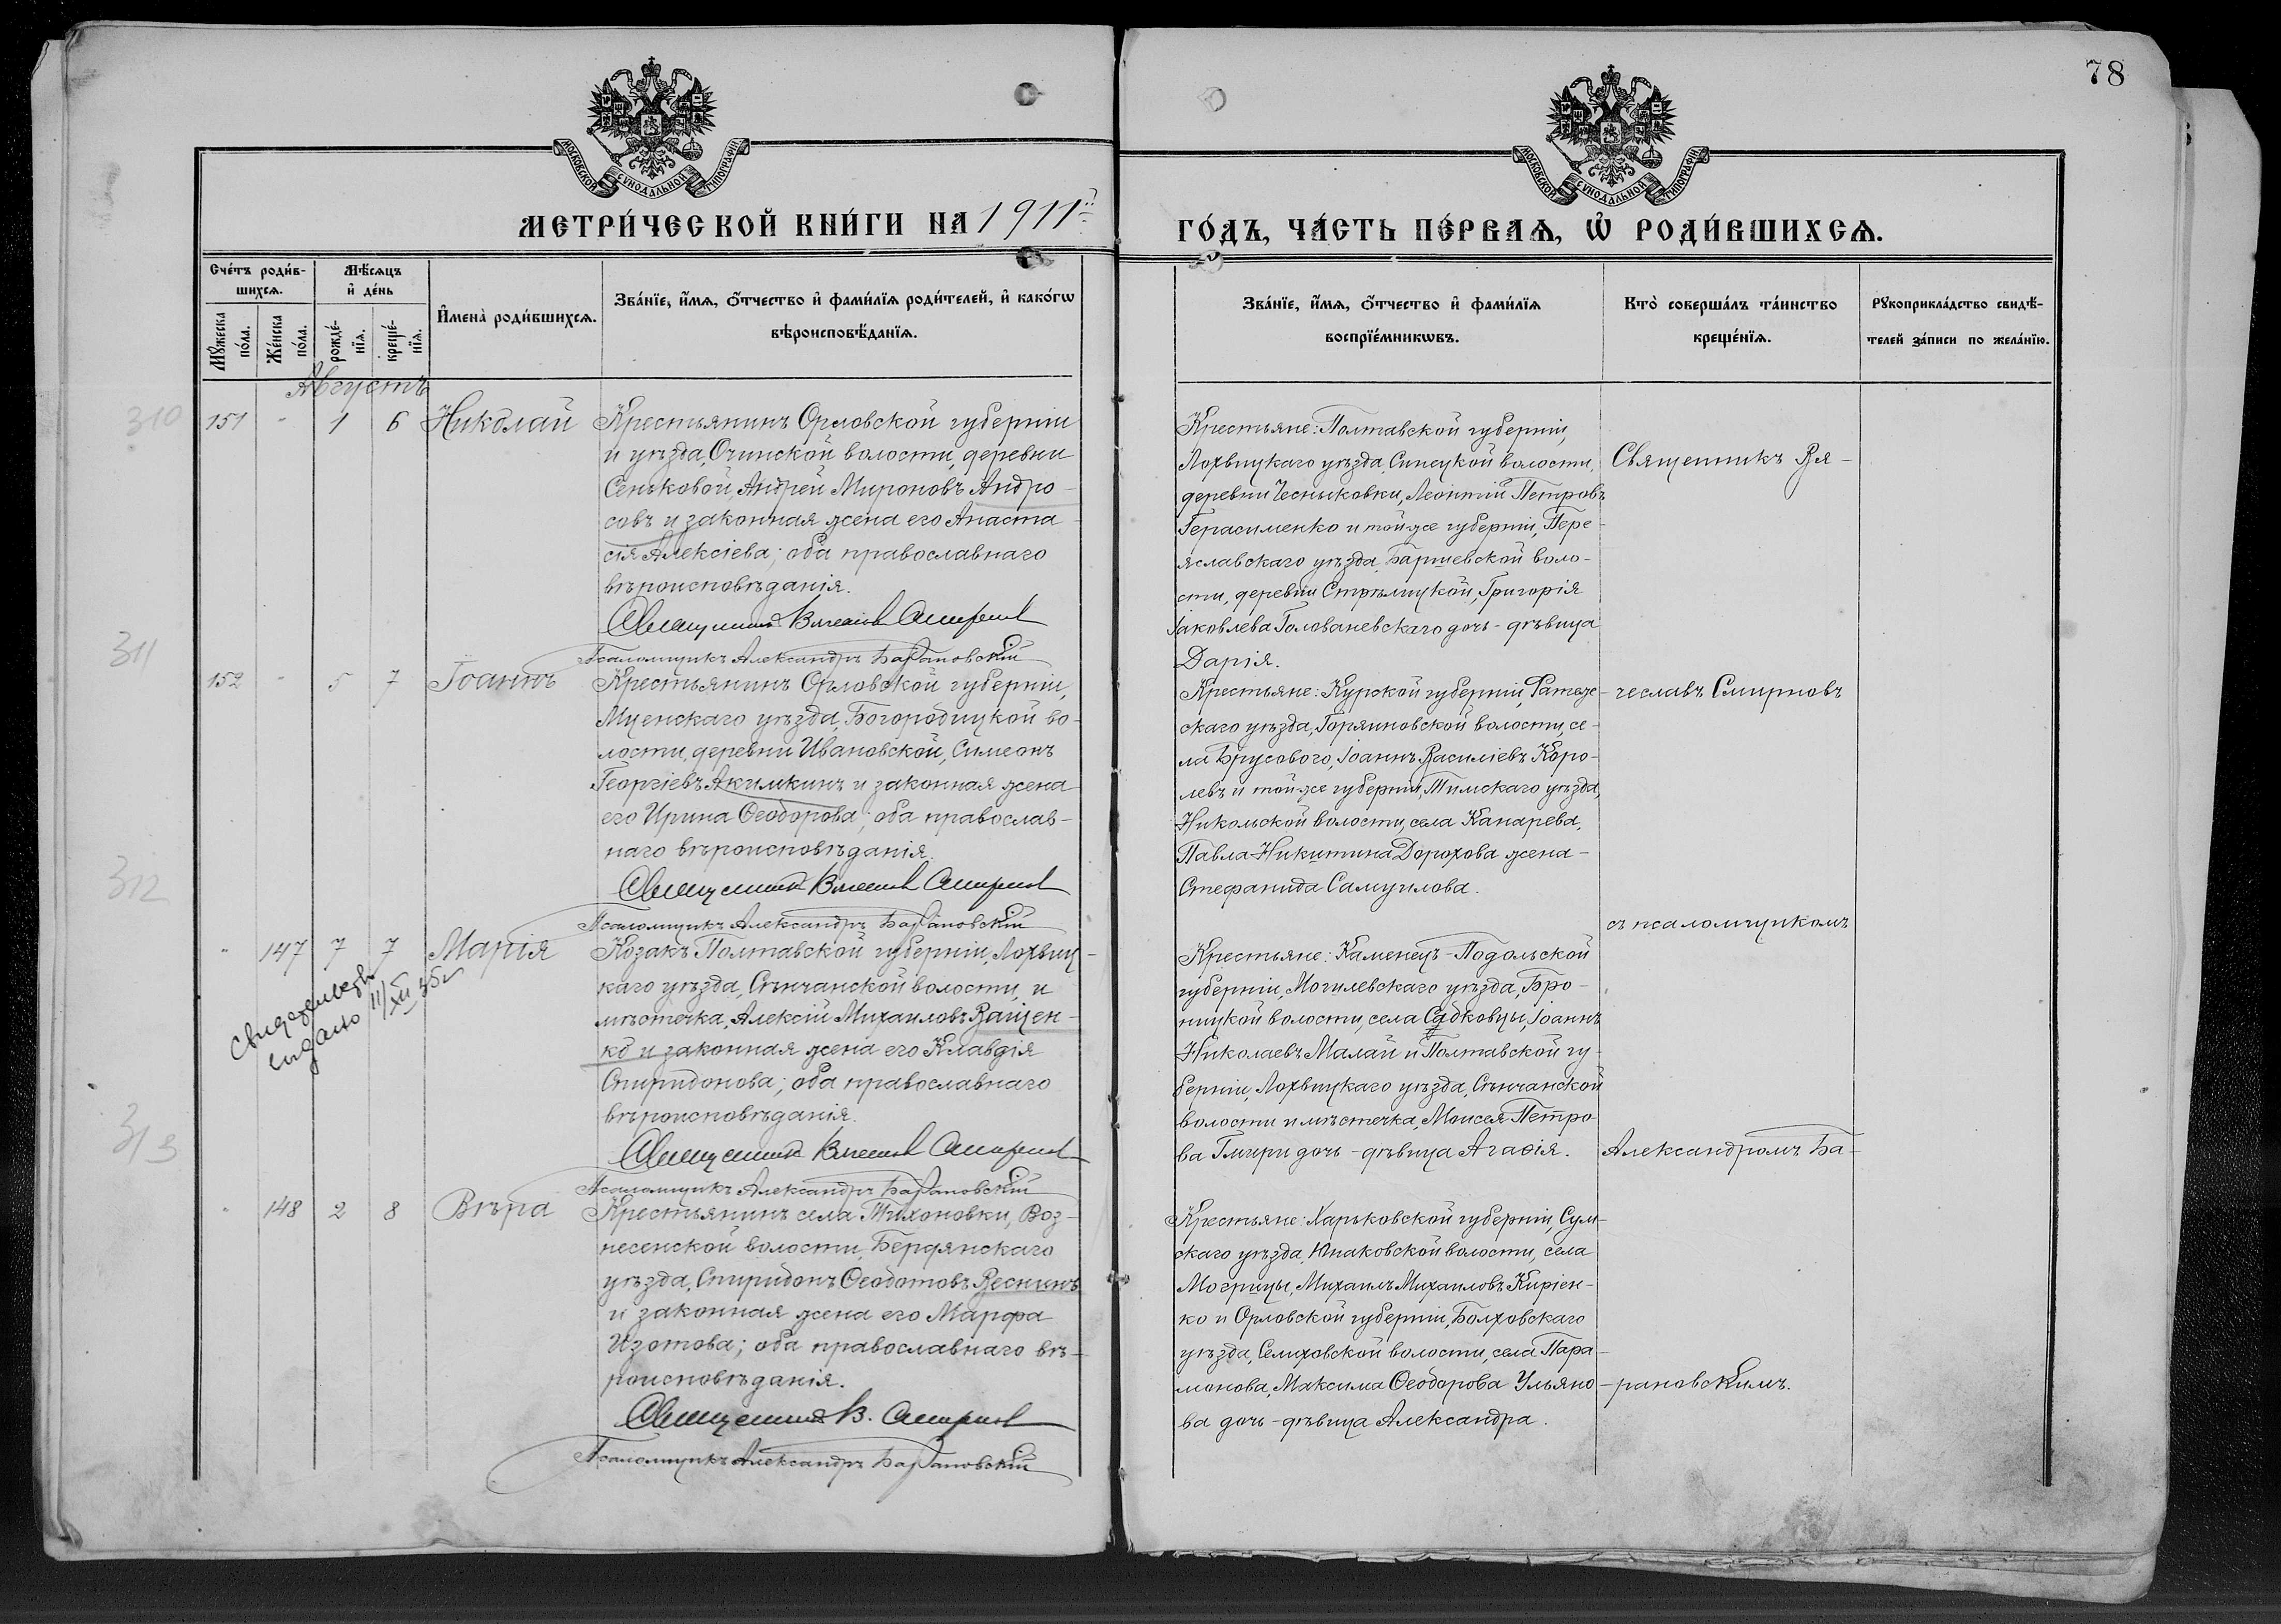 78
МОСКОВСКОЙ СѴНОДАЛЬНОЙ ТИПОГРАФІИ
МОСКОВСКОЙ СѴНОДАЛЬНОЙ ТИПОГРАФІИ
МЕТРИ́ЧЕСКОЙ КНИ́ГИ НА 1911й
ГО́ДЪ, ЧА́СТЬ ПЕ́РВАѦ, Ѡ҆ РОДИ́ВШИХСѦ.
Сче́тъ роди́в-
шихсѧ.
Мꙋжеска
по́ла.
Же́нска
по́ла.
Мѣ́сѧцъ
и҆ де́нь
рожде́-
нїѧ.
креще́-
нїѧ.
И҆мена̀ роди́вшихсѧ.
Зва́нїе, и҆́мѧ, ѻ҆́тчество и҆ фами́лїѧ роди́телей, и҆ како́гѡ
вѣроисповѣ́данїѧ.
Зва́нїе, и҆́мѧ, ѻ҆́тчество и҆ фами́лїѧ
воспрїе́мникѡвъ.
Кто̀ соверша́лъ та́инство
креще́нїѧ.
Рꙋкоприкла́дство свидѣ́-
телей за́писи по жела́нїю.
Августъ
310
151 - 1 6 Николай
Крестьянинъ Орловской губерніи
и уѣзда, Очинской волости, деревни
Сеньковой, Андрей Мироновъ Андро-
совъ и законная жена его Анаста-
сія Алексіева; оба православнаго
вѣроисповѣданія.
Священникъ Вячеславъ Смирновъ
Псаломщикъ Александръ Барановскій
Крестьяне: Полтавской губерніи,
Лохвицкаго уѣзда, Синецкой волости,
деревни Чесныковки, Леонтій Петровъ
Герасименко и той же губерніи, Пере-
яславскаго уѣзда, Барышевской воло-
сти, деревни Стрѣлицкой, Григорія
Іаковлева Голованевскаго дочь - дѣвица
Дарія.
Священникъ Вя-
311
152 - 5 7 Іоаннъ
Крестьянинъ Орловской губерніи,
Мценскаго уѣзда, Богородицкой во-
лости, деревни Ивановской, Симеонъ
Георгіевъ Акимкинъ и законная жена
его Ирина Ѳеодорова; оба православ-
наго вѣроисповѣданія.
Священникъ Вячеславъ Смирновъ
Псаломщикъ Александръ Барановскій
Крестьяне: Курской губерніи, Фатеже-
скаго уѣзда, Горяиновской волости, се-
ла Брусового, Іоаннъ Василіевъ Коро-
левъ и той же губерніи, Тимскаго уѣзда,
Никольской волости, села Канарева,
Павла Никитина Дорохова жена -
Стефанида Самуилова.
чеславъ Смирновъ
съ псаломщикомъ
312
" 147 7 7 Марія
Свидетельство
выдано 11/XII 35 г
Козакъ Полтавской губерніи, Лохвиц-
каго уѣзда, Сѣнчанской волости, и
мѣстечка, Алексій Михаиловъ Ващен-
ко и законная жена его Клавдія
Спиридонова; оба православнаго
вѣроисповѣданія.
Священникъ Вячеславъ Смирновъ
Псаломщикъ Александръ Барановскій
Крестьяне: Каменецъ-Подольской
губерніи, Могилевскаго уѣзда, Бро-
ницкой волости, села Садковцы, Іоаннъ
Николаевъ Малай и Полтавской гу-
берніи, Лохвицкаго уѣзда, Сѣнчанской
волости и мѣстечка, Моисея Петро-
ва Гмири дочь - дѣвица Агаѳія.
Александромъ Ба-
313
" 148 2 8 Вѣра
Крестьянинъ села Тихоновки, Воз-
несенской волости, Бердянскаго
уѣзда, Спиридонъ Ѳеодотовъ Веснинъ
и законная жена его Марфа
Изотова; оба православнаго вѣ-
роисповѣданія.
Священникъ В. Смирновъ
Псаломщикъ Александръ Барановскій
Крестьяне: Харьковской губерніи, Сум-
скаго уѣзда, Юнаковской волости, села
Могрицы, Михаилъ Михаиловъ Киріен-
ко и Орловской губерніи, Болховскаго
уѣзда, Селиховской волости, села Пара-
монова, Максима Ѳеодорова Ульяно-
ва дочь - дѣвица Александра.
рановскимъ.